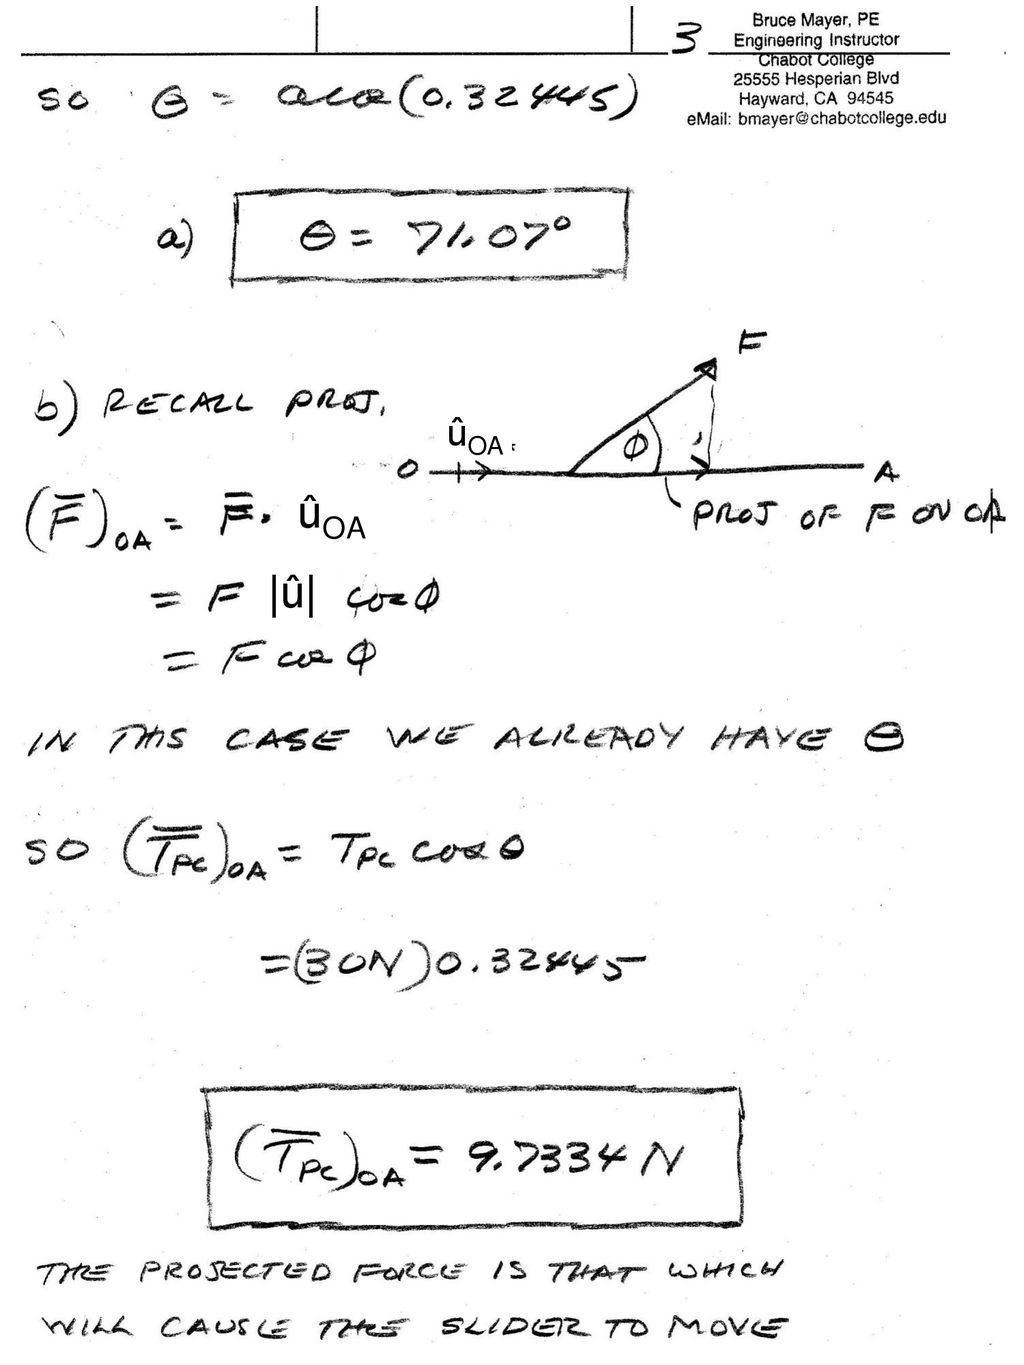 3
Bruce Mayer, PE
Engineering Instructor
Chabot College
25555 Hesperian Blvd
Hayward, CA 94545
eMail: bmayer@chabotcollege.edu
SO θ = acos(0.32445)
a) θ = 71.07°
b) RECALL PROJ.
F
û_OA
ϕ
O
A
PROJ OF F ON OA
(F̄)_OA = F̄ · û_OA
= F |û| cos ϕ
= F cos ϕ
IN THIS CASE WE ALREADY HAVE θ
SO (T̄_PC)_OA = T_PC cos θ
=(30N)0.32445
(T̄_PC)_OA = 9.7334 N
THE PROJECTED FORCE IS THAT WHICH
WILL CAUSE THE SLIDER TO MOVE